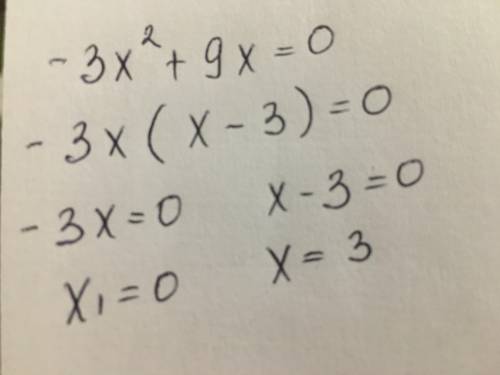 -3x² + 9x = 0
-3x(x - 3) = 0
-3x = 0 x - 3 = 0
x₁ = 0 x = 3